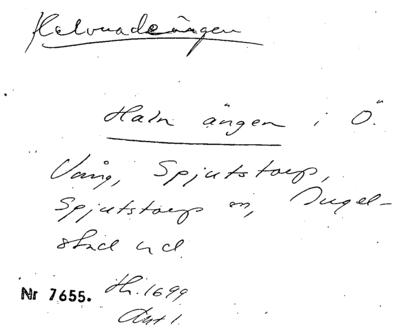 Helvuadeängen
Haln ängen i Ö.
Vång, Spjutstorp,
Spjutstorps sn, Ingel-
stad hd
Nr 7655. Hh. 1699
Akt 1.